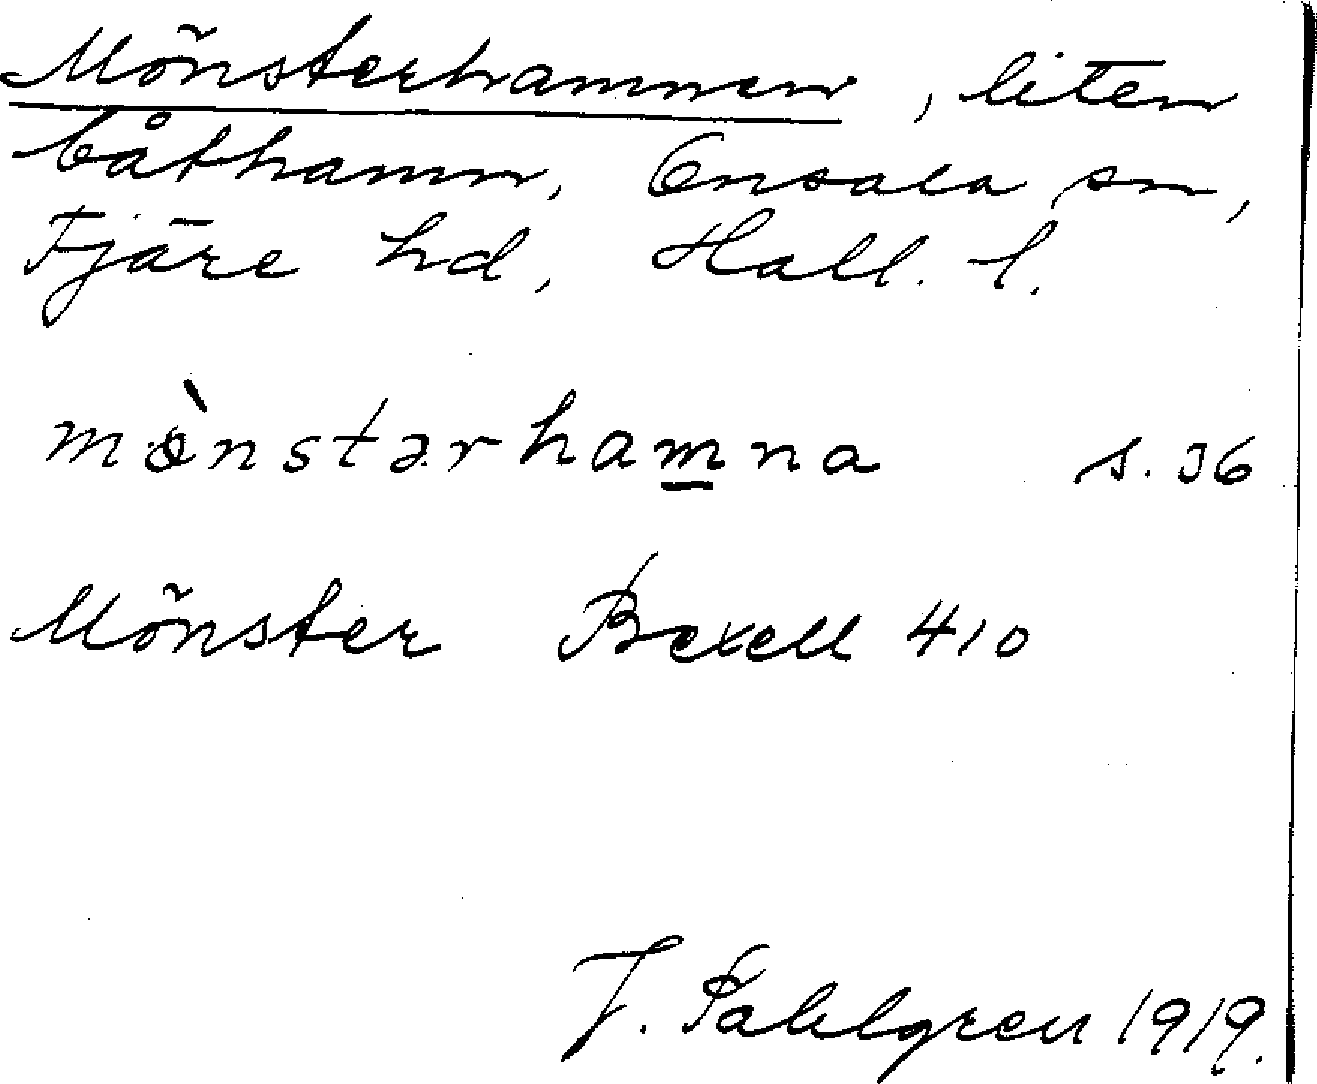 Mönsterhamnen, liten
båthamn, Onsala sn,
Fjäre hd, Hall. l.
mø̀nstərhamna s. 36
Mönster Bexell 410
J. Sahlgren 1919.